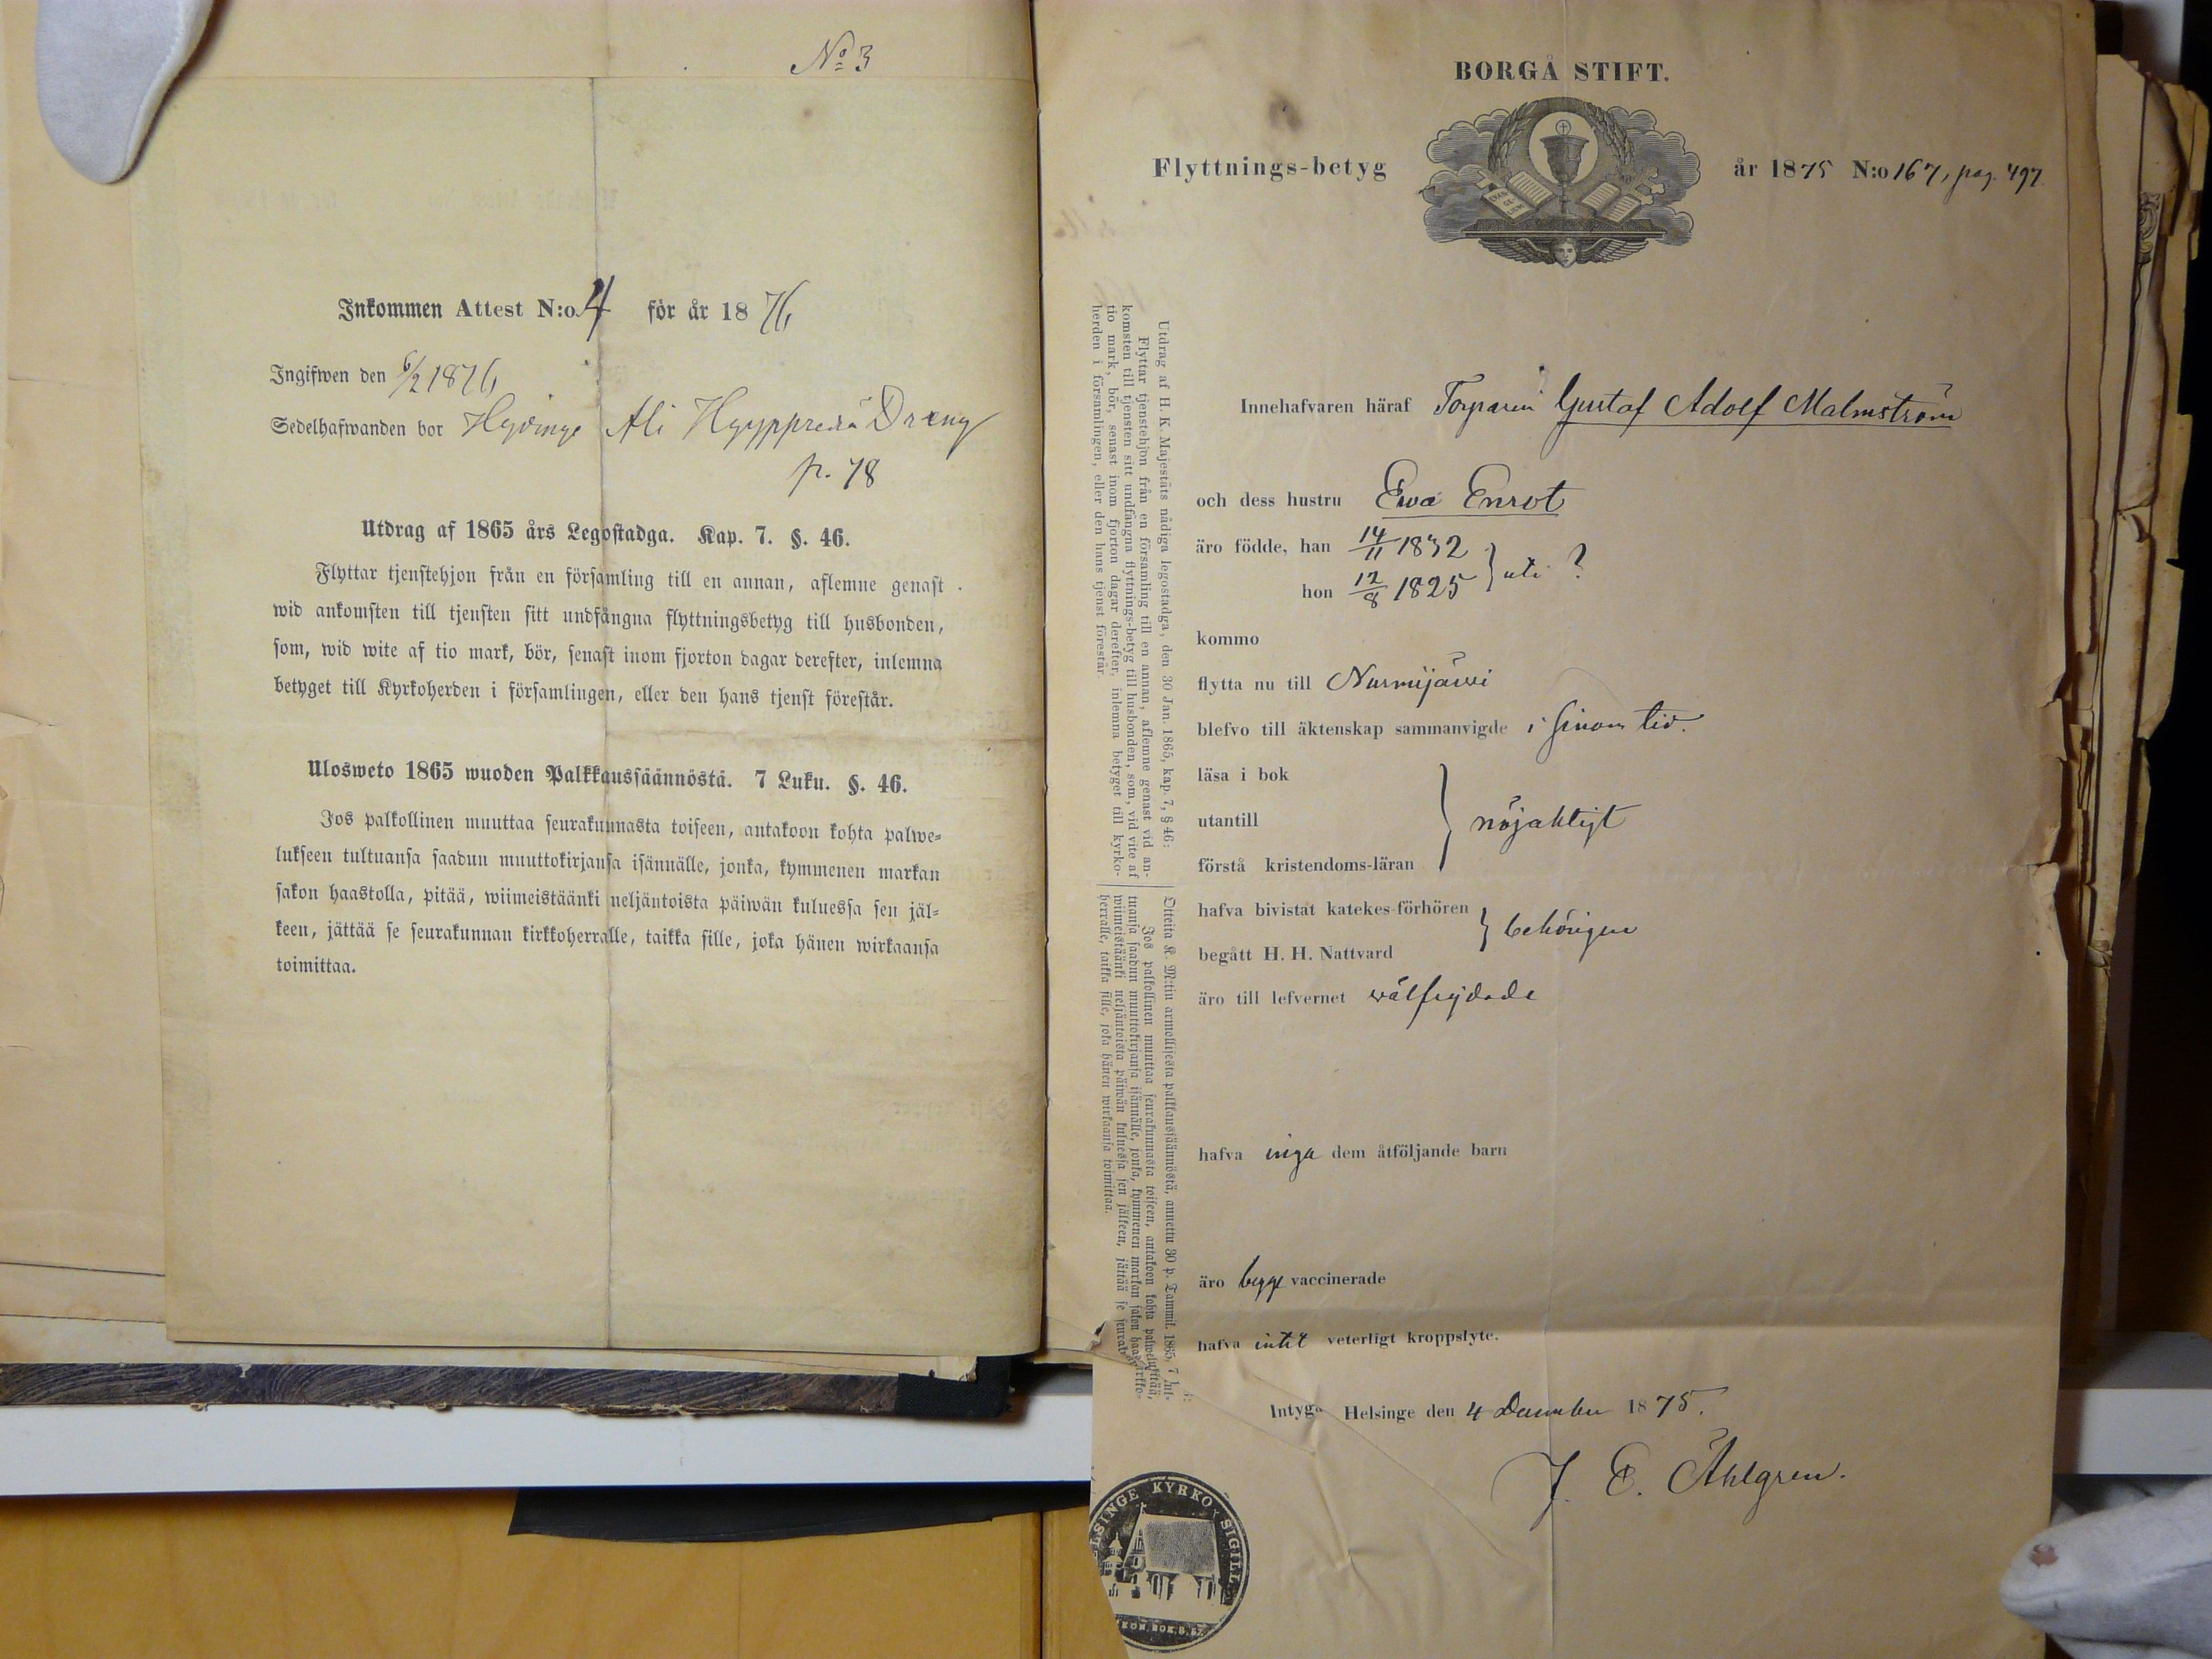 No 3
Inkommen Attest N:o 4 för år 1876
Ingifwen den 6/2 1876
Sedelhafwanden bor Hyvinge Ali Hyyppärä Dräng
p. 78
Utdrag af 1865 års Legostadga. Kap. 7. §. 46.
Flyttar tjenstehjon från en församling till en annan, aflemne genast
wid ankomsten till tjensten sitt undfångna flyttningsbetyg till husbonden,
som, wid wite af tio mark, bör, senast inom fjorton dagar derefter, inlemna
betyget till Kyrkoherden i församlingen, eller den hans tjenst förestår.
Ulosweto 1865 wuoden Palkkaussäännöstä. 7 Luku. §. 46.
Jos palkollinen muuttaa seurakunnasta toiseen, antakoon kohta palwe-
lukseen tultuansa saadun muuttokirjansa isännälle, jonka, kymmenen markan
sakon haastolla, pitää, wiimeistäänki neljäntoista päiwän kuluessa sen jäl-
keen, jättää se seurakunnan kirkkoherralle, taikka sille, joka hänen wirkaansa
toimittaa.
BORGÅ STIFT.
EVANGELIUM
Flyttnings-betyg år 1875 N:o 167, pag. 497.
Utdrag af H. K. Majestäts nådiga legostadga, den 30 Jan. 1865, kap. 7, § 46:
Flyttar tjenstehjon från en församling till en annan, aflemne genast vid an-
komsten till tjensten sitt undfångna flyttnings-betyg till husbonden, som, vid vite af
tio mark, bör, senast inom fjorton dagar derefter, inlemna betyget till kyrko-
herden i församlingen, eller den hans tjenst förestår.
Otteita K. M:tin armollisesta palkkaussäännöstä, annettu 30 p. Tammik. 1865, 7
Jos palkollinen muuttaa seurakunnasta toiseen, antakoon kohta
tuansa saadun muuttokirjansa isännälle, jonka, kymmenen markan sakon
wiimeistäänki neljäntoista päiwän kuluessa sen jälkeen, jättää se
herralle, taikka sille, joka hänen wirkaansa toimittaa.
Innehafvaren häraf Torparen Gustaf Adolf Malmström
och dess hustru Ewa Enrot
äro födde, han 14/11 1832
hon 12/8 1825 uti ?
kommo
flytta nu till Nurmijärwi
blefvo till äktenskap sammanvigde i sinom tid.
läsa i bok
utantill nöjaktigt
förstå kristendoms-läran
hafva bivistat katekes-förhören
behörigen
begått H. H. Nattvard
äro till lefvernet wälfrejdade
hafva inga dem åtföljande barn
äro begge vaccinerade
hafva intet veterligt kroppslyte.
Intyga Helsinge den 4 December 1875.
J. E. Åhlgren.
LSINGE KYRKO SIGILL
KON. BOK. 8. 57.